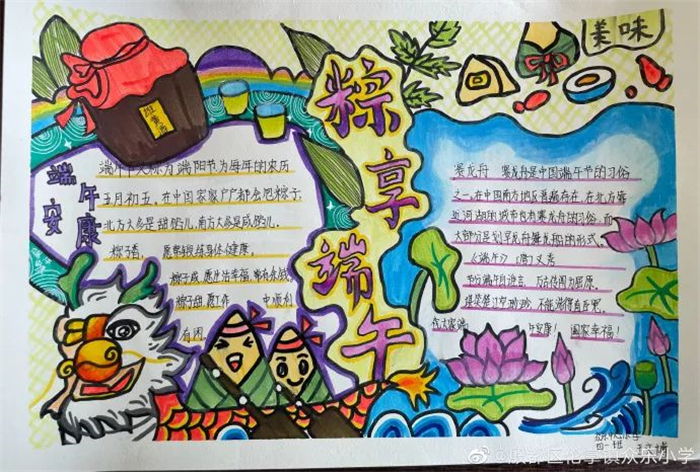 美味
雄黄酒
粽享端午
端午
安康
端午节又称为端阳节为每年的农历
五月初五，在中国家家户户都会包粽子
北方大多是甜馅儿，南方大多是咸馅儿。
粽子香，愿常锻炼身体健康。
有闲。
赛龙舟 赛龙舟是中国端午节的习俗
之一，在中国南方地区普遍存在，在北方靠
近河湖的城市也有赛龙舟的习俗，而
大部分是划旱龙舟舞龙船的形式。
《端午》(唐)文秀
节分端午自谁言，万古传闻为屈原。
堪笑楚江空渺渺，不能洗得直臣冤。
祝大家端 午安康！ 国家幸福！
四一班